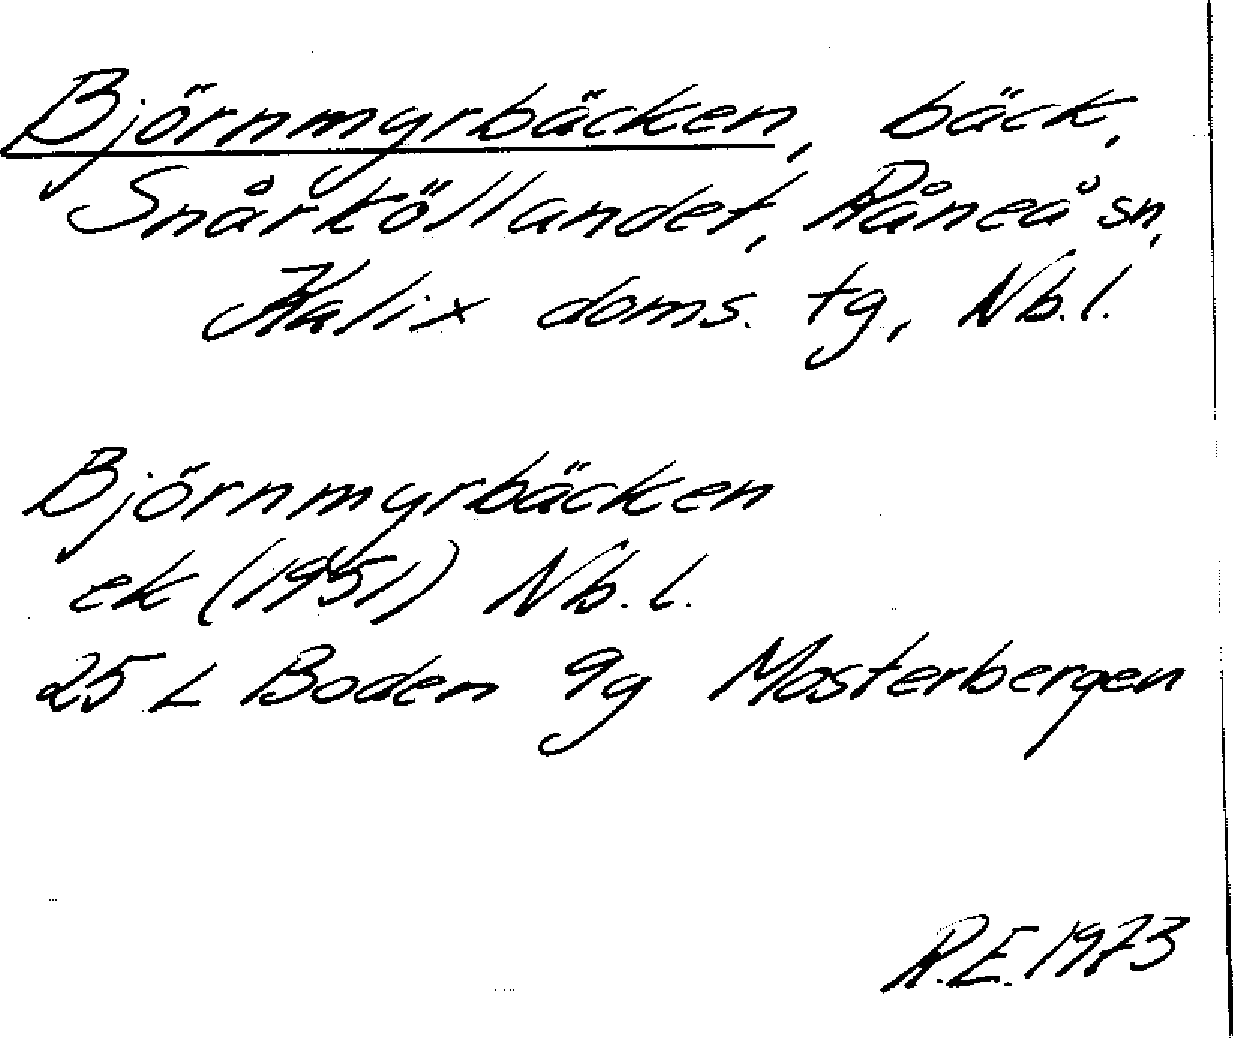 Björnmyrbäcken, bäck,
Snårköllandet, Råneå sn,
Kalix doms. tg, Nb.l.
Björnmyrbäcken
ek (1951) Nb.l.
25 L Boden 9g Mosterbergen
R.E. 1973